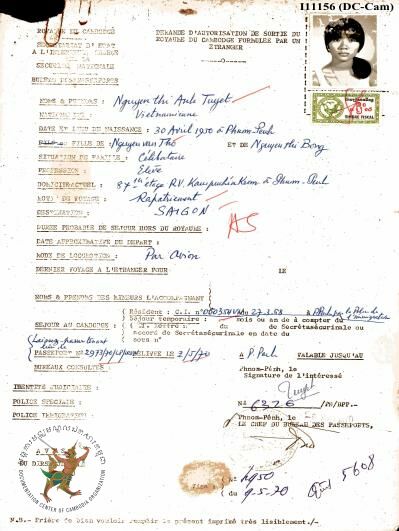 I11156 (DC-Cam)
ROYAUME DU CAMBODGE
DEMANDE D'AUTORISATION DE SORTIE DU
ROYAUME DU CAMBODGE FORMULEE PAR UN
ETRANGER
SECRETARIAT D'ETAT
A L'INTERIEUR CHARGE
DE LA
SECURITE NATIONALE
BUREAU DES PASSEPORTS
TIMBRE FISCAL
NOMS & PRENOMS : Nguyen thi Anh Tuyet
NATIONALITE : Vietnamienne
DATE ET LIEU DU NAISSANCE : 30 Avril 1950 à Phnom-Penh
FILS OU FILLE DE : Nguyen van Tho ET DE Nguyen thi Bong
SITUATION DE FAMILLE : Célibataire
PROFESSION : Elève
DOMICILE ACTUEL : 84 étage R.V. Kampuchia Krom à Phnom-Penh
MOTIF DU VOYAGE : Rapatriement
DESTINATION : SAIGON
DUREE PROBABLE DE SEJOUR HORS DU ROYAUME :
DATE APPROXIMATIVE DU DEPART :
MODE DE LOCOMOTION : Par Avion
DERNIER VOYAGE A L'ETRANGER POUR LE
NOMS & PRENOMS DES MINEURS L'ACCOMPAGNANT
Résident : C.I. n° du 27.3.68 à
Séjour temporaire : mois ou an de à compter du
SEJOUR AU CAMBODGE : du de Secrétasécurimale ou
accord de Secrétasécurimale en date du
sous n°
Laissez-passer tenant
lieu de
PASSEPORT N° DELIVRE 2/5/70 à P. Penh VALABLE JUSQU'AU
BUREAUX CONSULTES :
Phnom-Penh,
Signature de l'intéressé
Tuyet
IDENTITE JUDICIAIRE :
N° 6226 /PN/BPP.-
POLICE SPECIALE :
Phnom-Pénh, le
POLICE IMMIGRATION :
LE CHEF DU BUREAU DES PASSEPORTS,
AVIS
DOCUMENTATION CENTER OF CAMBODIA ORGANIZATION
N° 4950
du 9.5.70
5608
N.B.- Prière de bien vouloir remplir le présent imprimé très lisiblement.